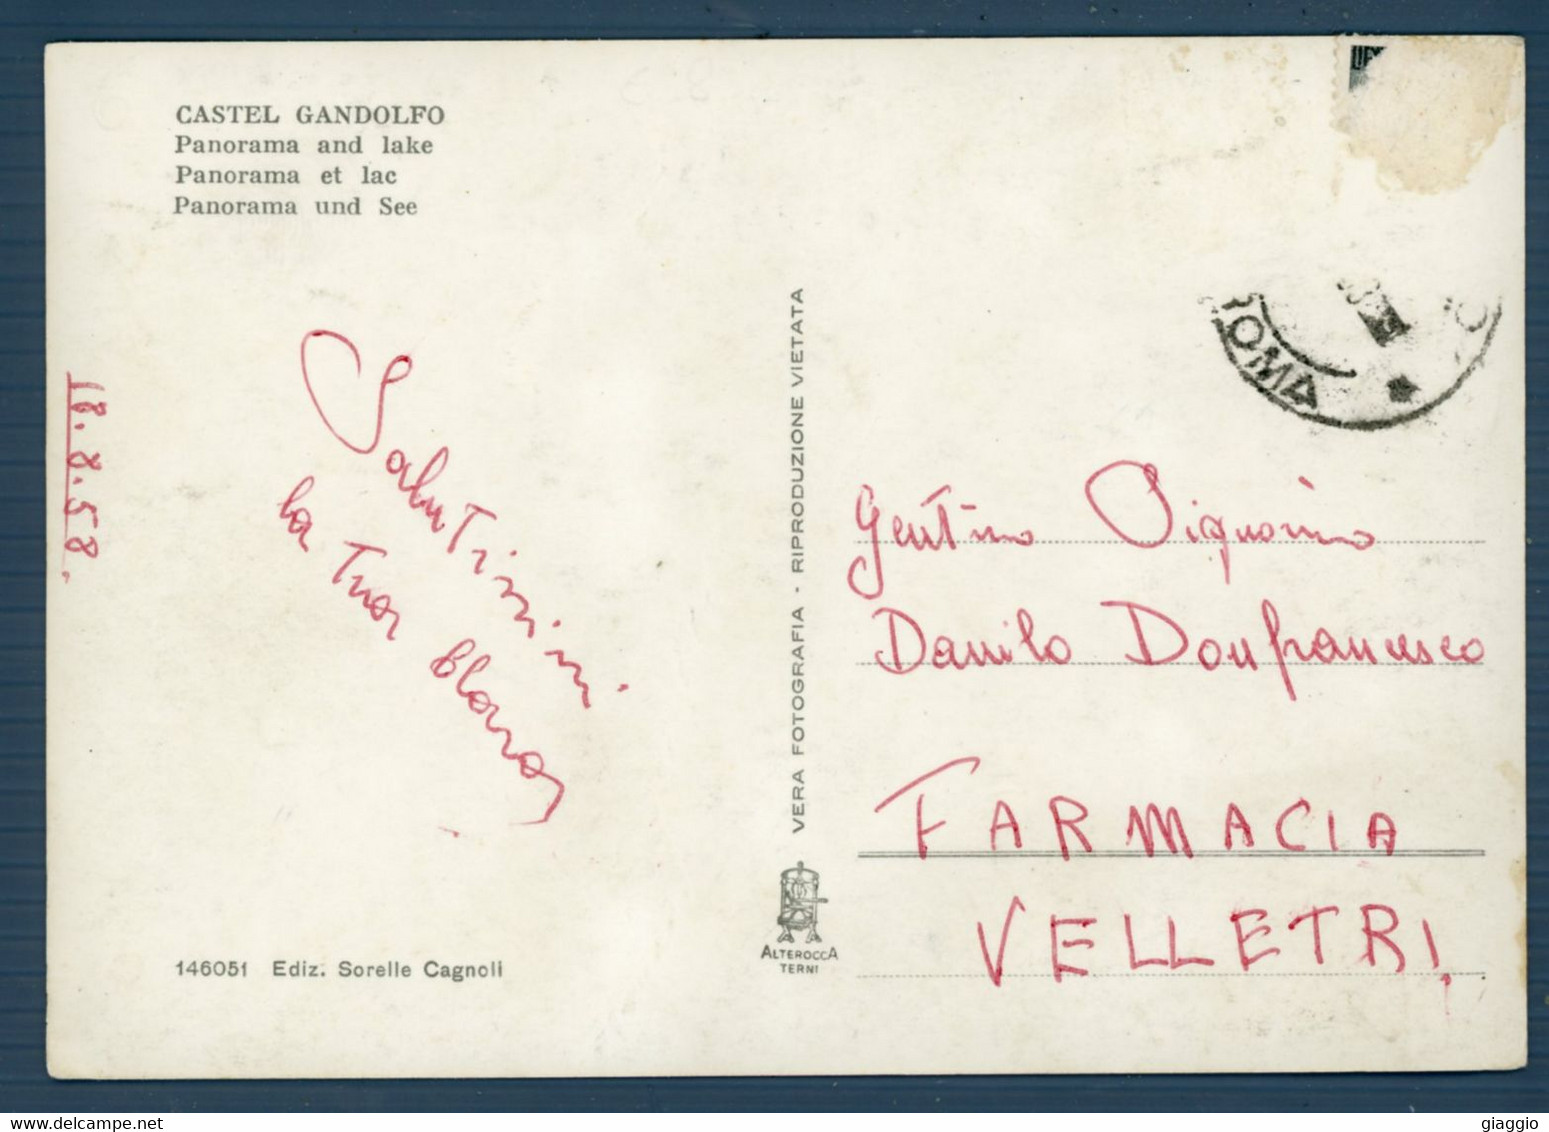 CASTEL GANDOLFO
Panorama and lake
Panorama et lac
Panorama und See
18.8.58.
Salutissimi
la tua
146051 Ediz. Sorelle Cagnoli
VERA FOTOGRAFIA - RIPRODUZIONE VIETATA
ALTEROCCA
TERNI
ROMA
Danilo Donfrancesco
FARMACIA
VELLETRI
giaggio